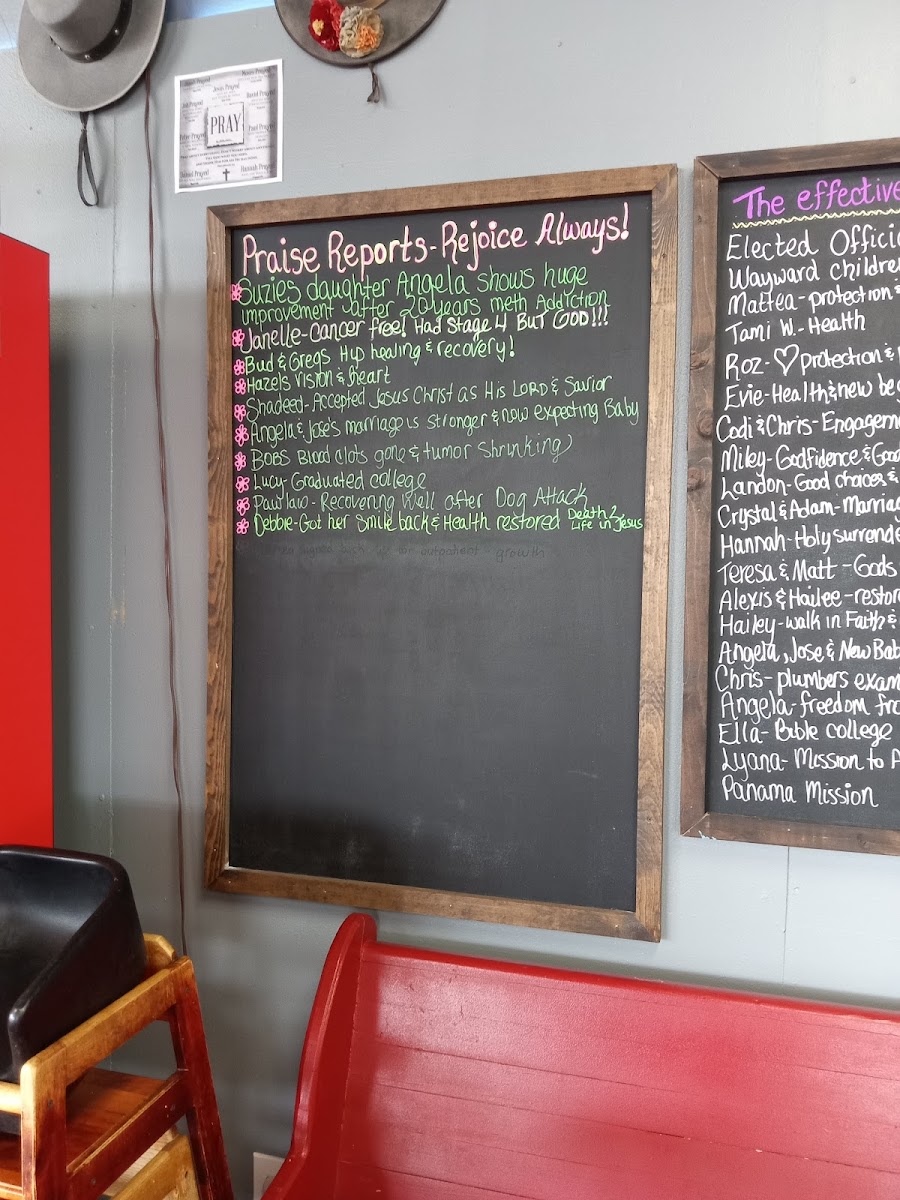 PRAY
Praise Reports - Rejoice Always!
Suzies daughter Angela shows huge
improvement after 20 years meth Addiction
Janelle - cancer free! Had Stage 4 BUT GOD!!!
Bud & Gregs Hip healing & recovery!
Hazels Vision & heart
Shadeed - Accepted Jesus Christ as His LORD & Savior
Angela & Jose's marriage is stronger & now expecting Baby
BOBS Blood clots gone & tumor Shrinking
Lucy Graduated college
Paw law - Recovering Well after Dog Attack
Debbie - Got her Smile back & Health restored Death 2 Life in Jesus
outpatient - growth
The effective
Elected Offici
Wayward children
Mattea - protection &
Tami W. - Health
Roz - ♡ protection &
Evie - Health & new beg
Codi & Chris - Engagem
Miley - Godfidence & Good
Landon - Good choices &
Crystal & Adam - Marria
Hannah - Holy surrende
Teresa & Matt - Gods
Alexis & Hailee - restor
Hailey - walk in Faith &
Angela, Jose & New Bab
Chris - plumbers exam
Angela - freedom fro
Ella - Bible college
Lyana - Mission to A
Panama Mission